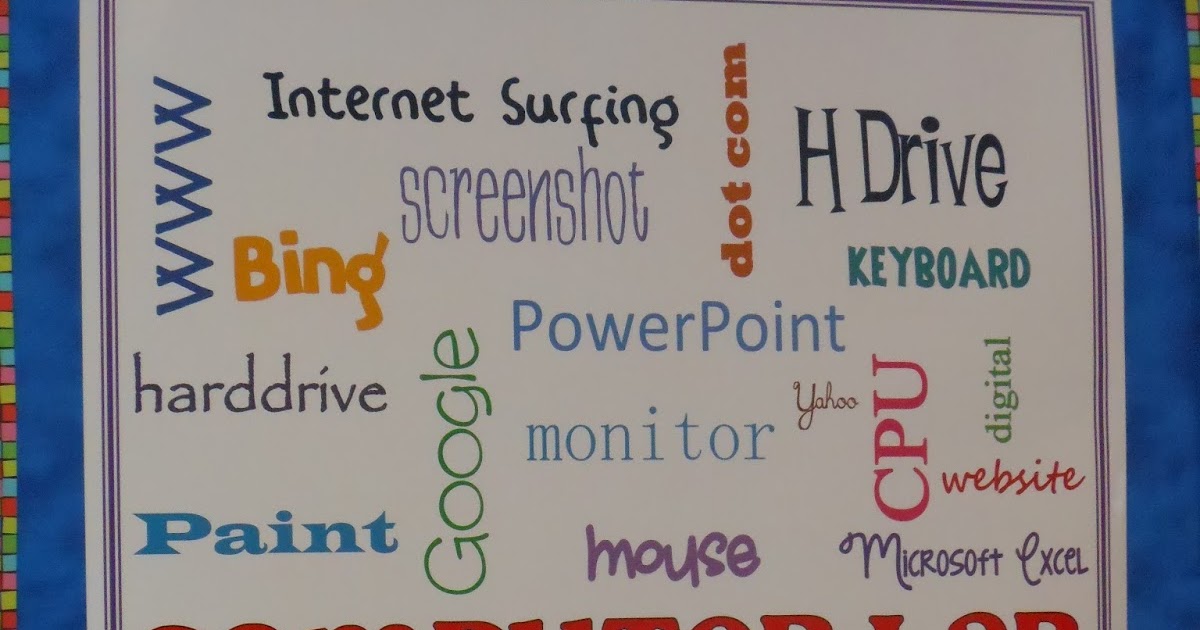 WWW
Internet Surfing
dot com
H Drive
screenshot
Bing
KEYBOARD
PowerPoint
harddrive
Google
digital
Yahoo
CPU
monitor
website
Paint
mouse
Microsoft Excel
COMPUTER LAB